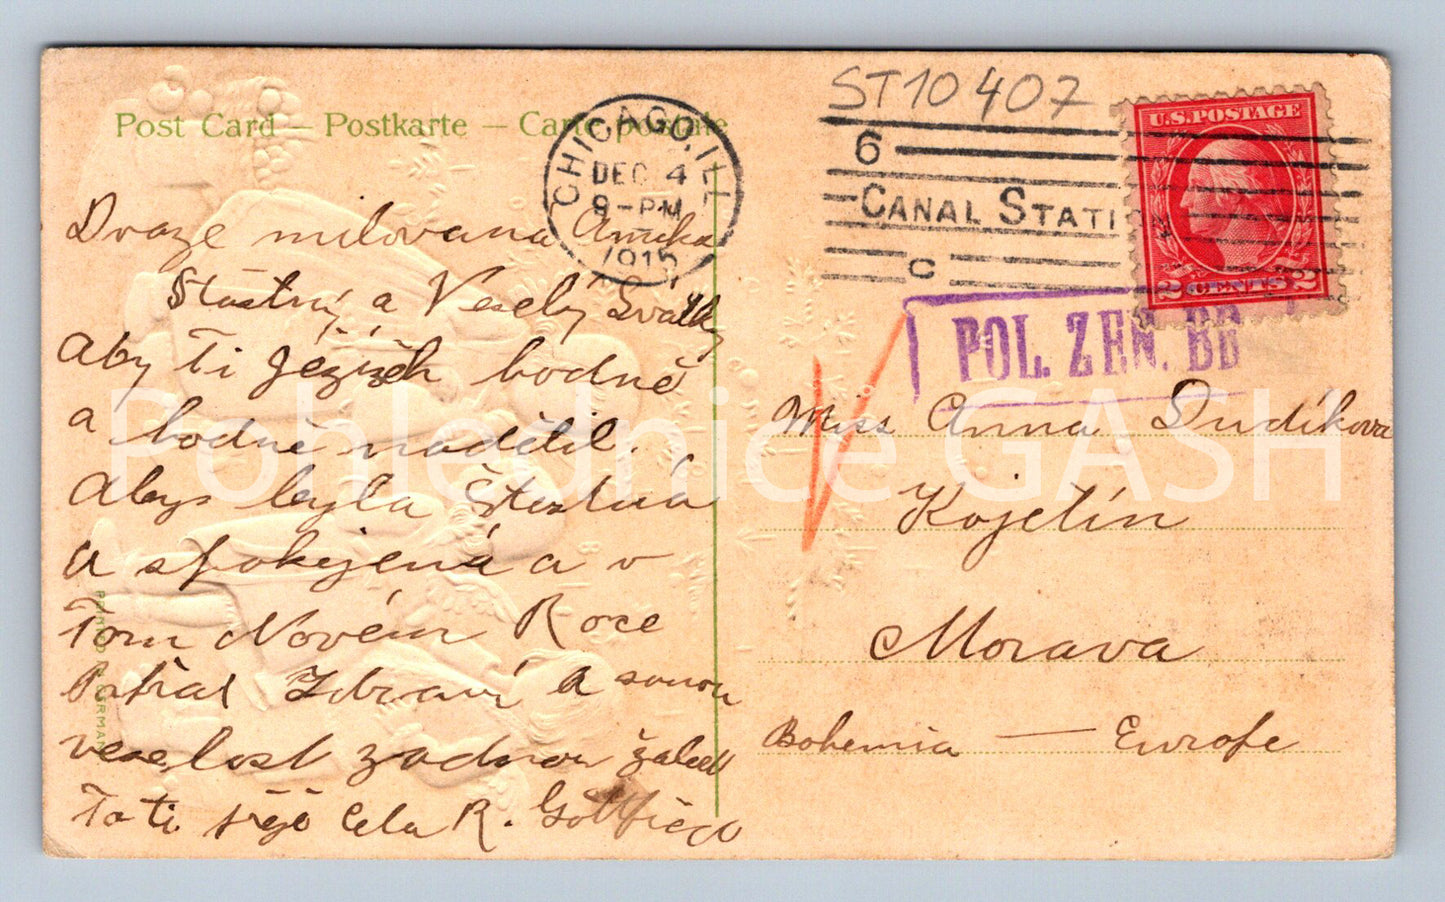 ST10 407
Post Card – Postkarte – Carte postale
CHICAGO, ILL.
DEC 4
9-PM
1915
6
CANAL STATION
C
U.S. POSTAGE
2 CENTS 2
POL. ZEN. BB
Draze milovana Anička
Štastný a Veselý Svátky
aby Ti Ježíšek hodně
a hodně nadělil.
Abys byla Štestná
a spokojená a v
Tom Novém Roce
Potřal Zdraví a samou
veselost žadnou žalost
To ti přeje Cela R. Gottfried
Miss Anna Dudíkova
Kojetín
Morava
Bohemia — Europe
Pohlednice GASH